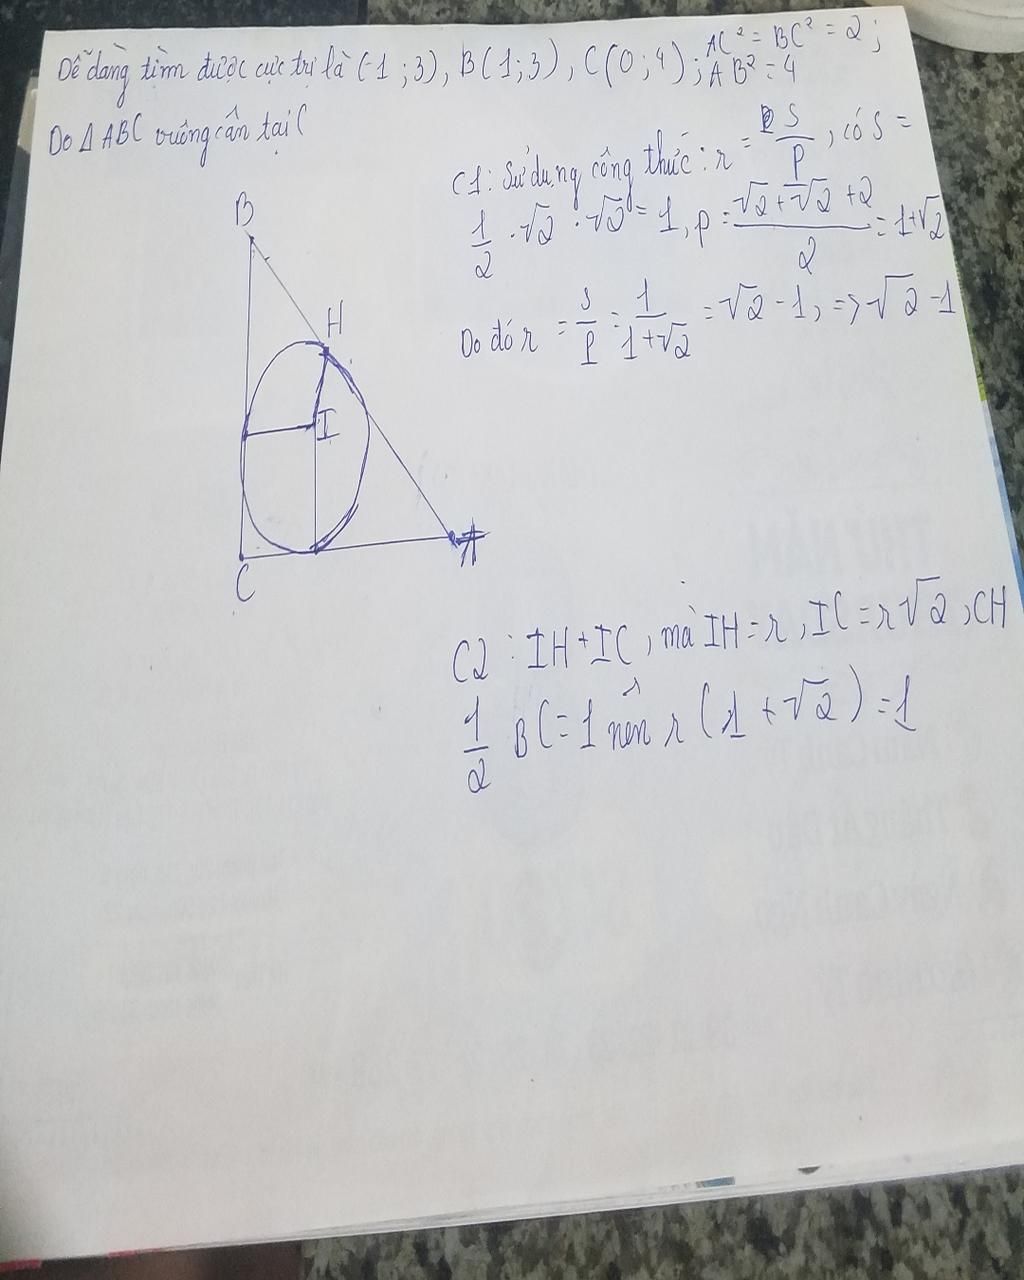 Dễ dàng tìm được cực trị là (-1;3), B(1;3), C(0;4); AC² = BC² = 2;
AB² = 4
Do Δ ABC vuông cân tại C
C1: Sử dụng công thức: r = S/P, có S =
1/2 · √2 · √2 = 1, p = (√2 + √2 + 2)/2 = 1+√2
Do đó r = S/P = 1/(1+√2) = √2 - 1, => √2 - 1
B
H
I
C
A
C2: IH + IC, mà IH = r, IC = r√2, CH
1/2 BC = 1 nên r(1 + √2) = 1